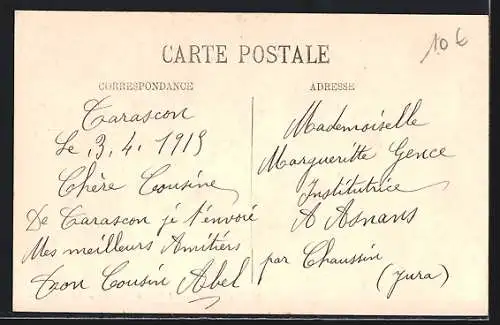 10€
CARTE POSTALE
CORRESPONDANCE
Tarascon
Le 3.4.1919
Chère Cousine
De Tarascon je t'envoie
Mes meilleurs Amitiés
Ton Cousin Abel
ADRESSE
Mademoiselle
Margueritte Gence
Institutrice
A Asnans
par Chaussin
(Jura)